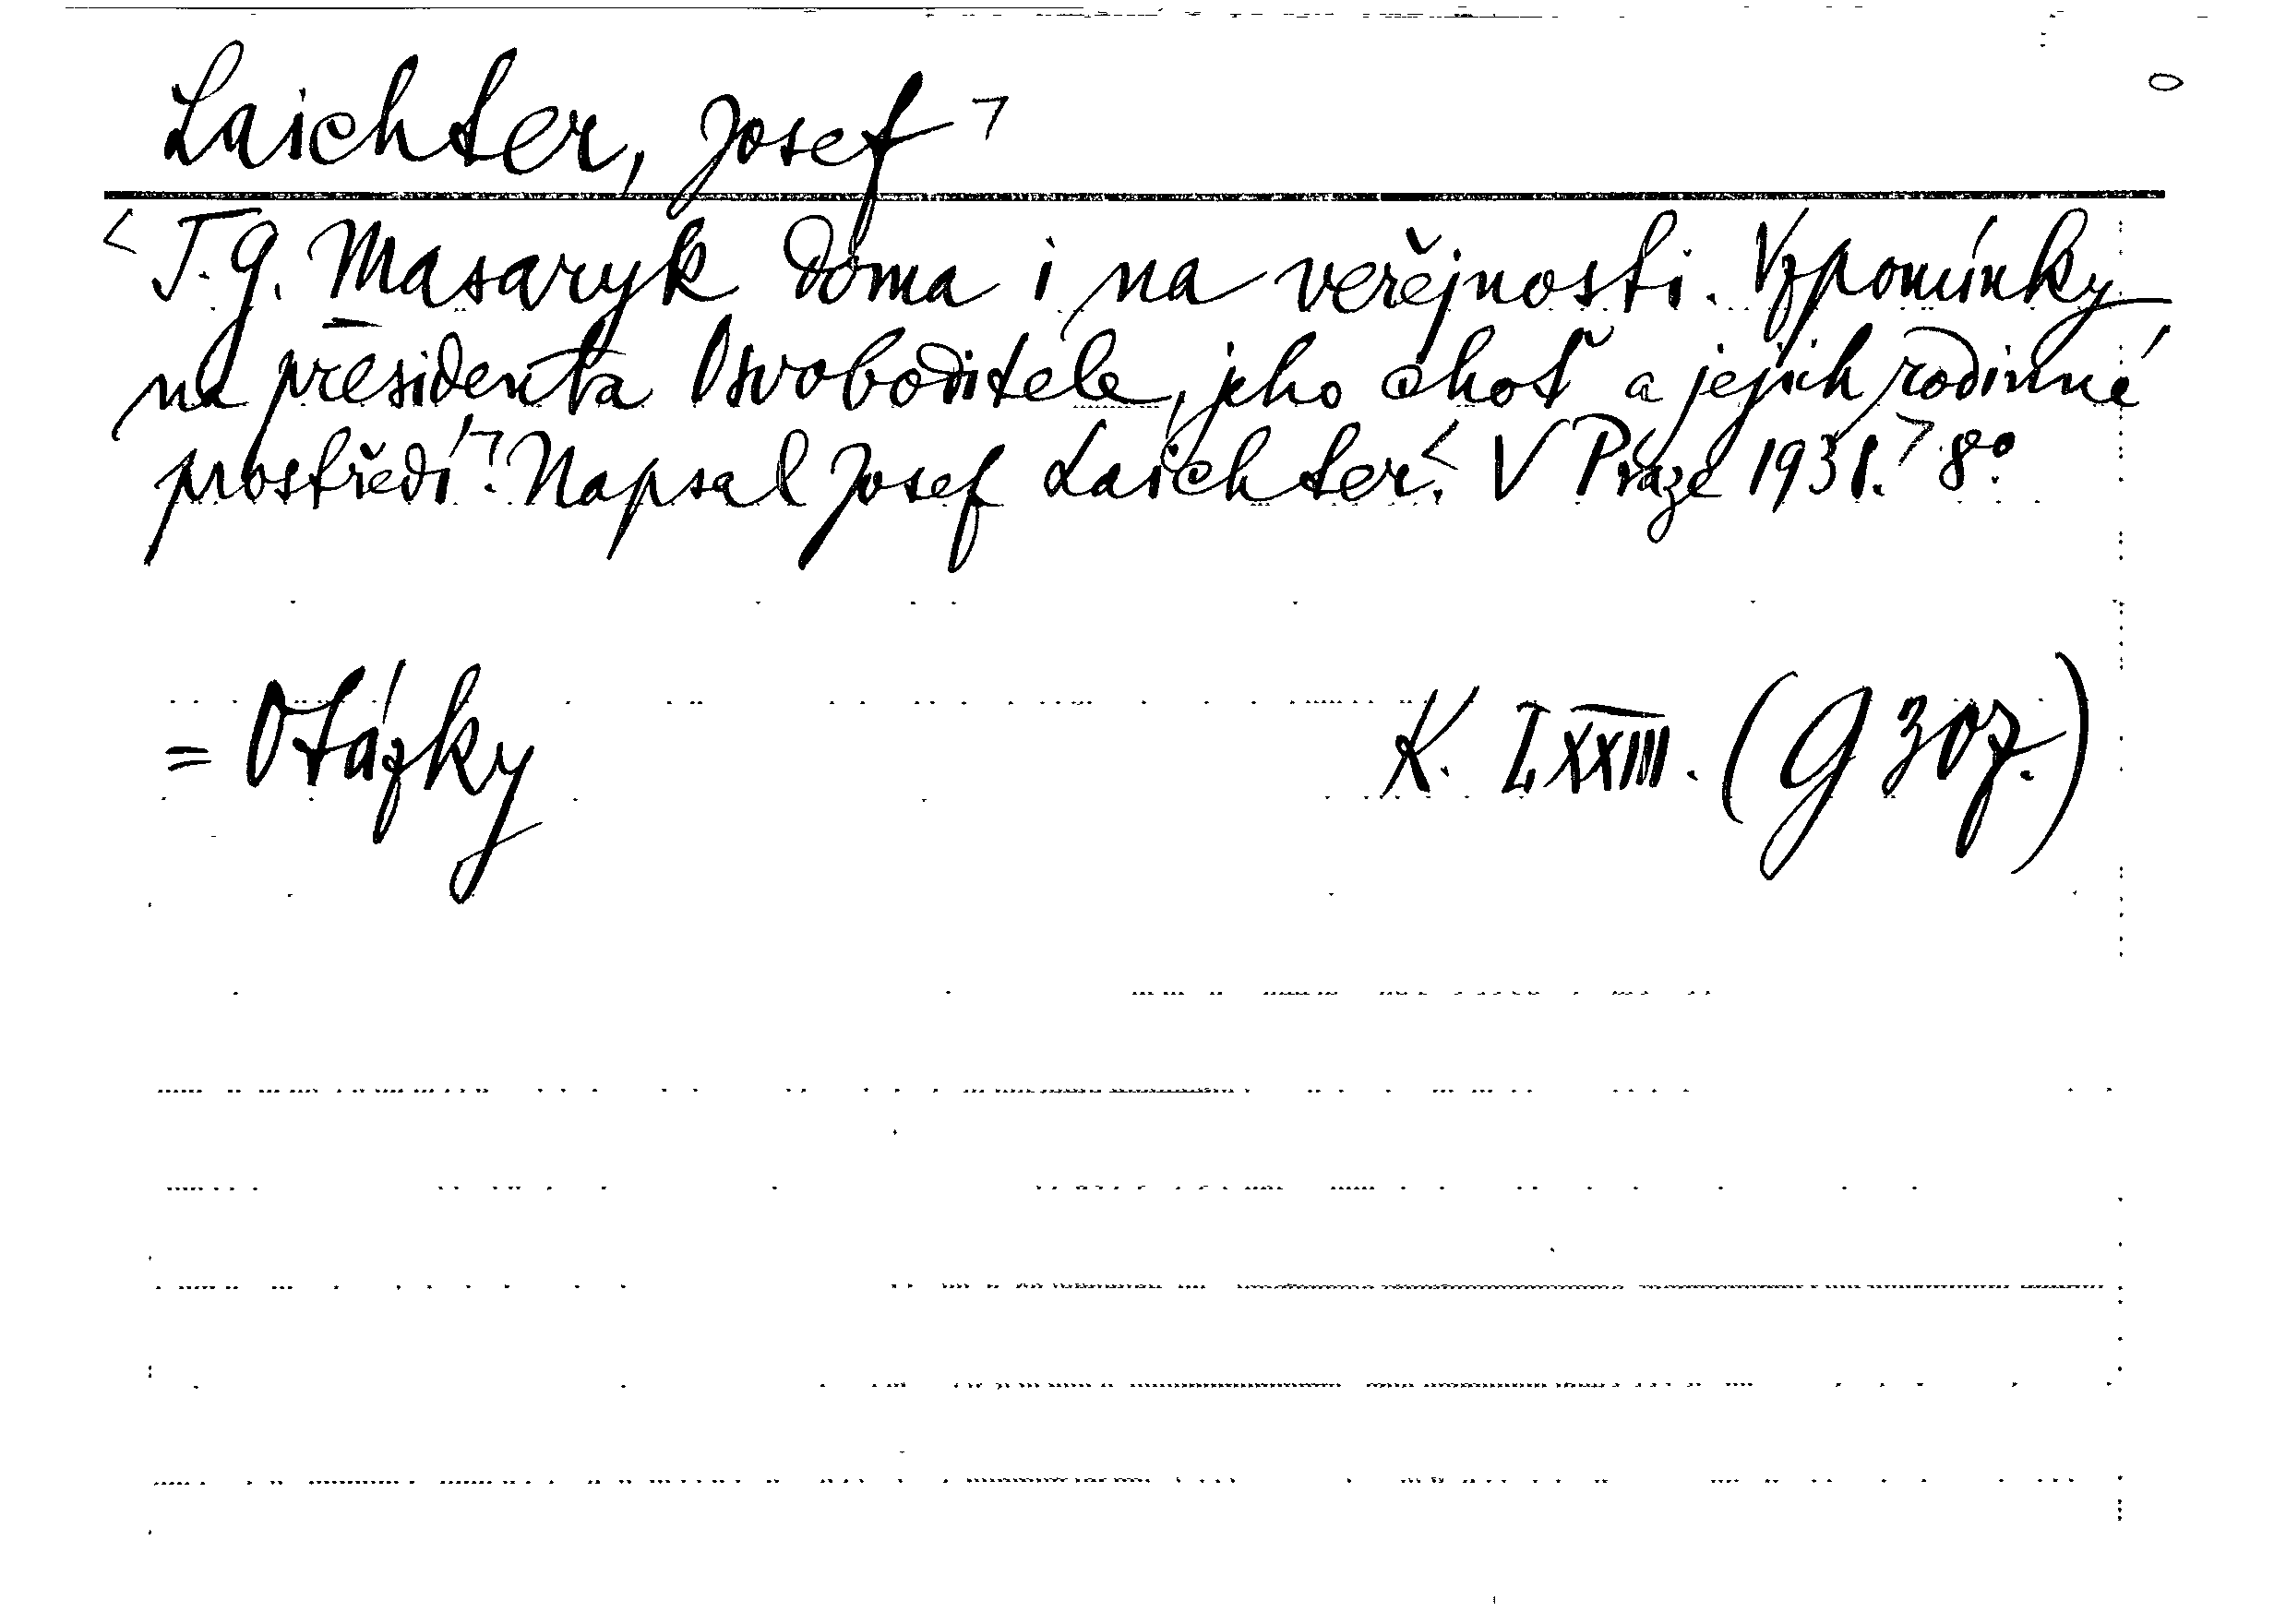 Laichter, Josef
T. G. Masaryk doma i na veřejnosti. Vzpomínky
na presidenta Osvoboditele, jeho choť a jejich rodinné
prostředí. Napsal Josef Laichter. V Praze 1938. 8º.
= Otázky K. LXXIII. (G 307.)